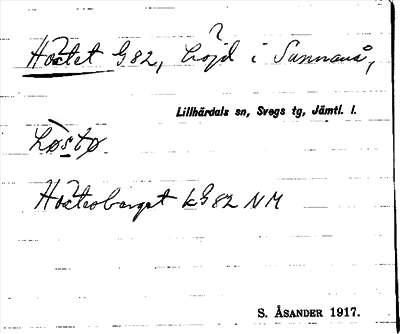 Håctet G82, höjd i Sunnanå,
Lillhärdals sn, Svegs tg, Jämtl. l.
Håctesberget kG82 NM
S. ÅSANDER 1917.